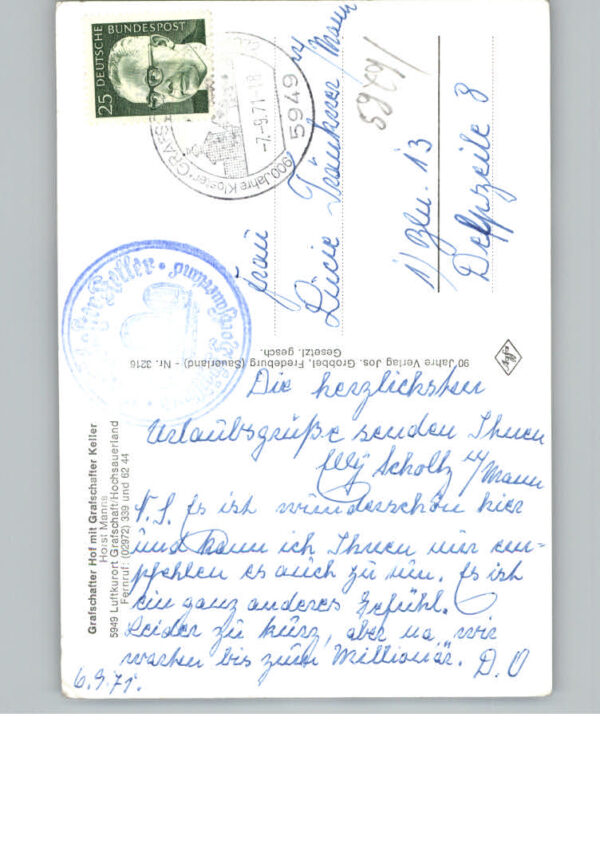 25 DEUTSCHE BUNDESPOST
900 Jahre Kloster-GRAFS
-7.-9.71-18
5949
5949/
Frau
Lucie Tränkner u/Mann
1) Bln. 13
Delpzeile 8
Keller
90 Jahre Verlag Jos. Grobbel, Fredeburg (Sauerland) - Nr. 3216
Gesetzl. gesch.
Grafschafter Hof mit Grafschafter Keller
Horst Manns
5949 Luftkurort Grafschaft/Hochsauerland
Fernruf: (02972) 339 und 62 44
Die herzlichsten
Urlaubsgrüße senden Ihnen
Elly Scholtz u/Mann
N.S. Es ist wunderschön hier
und kann ich Ihnen nur em-
pfehlen es auch zu tun. Es ist
ein ganz anderes Gefühl.
Leider zu kurz, aber na, wir
warten bis zum Millionär. D.O
6.9.71.